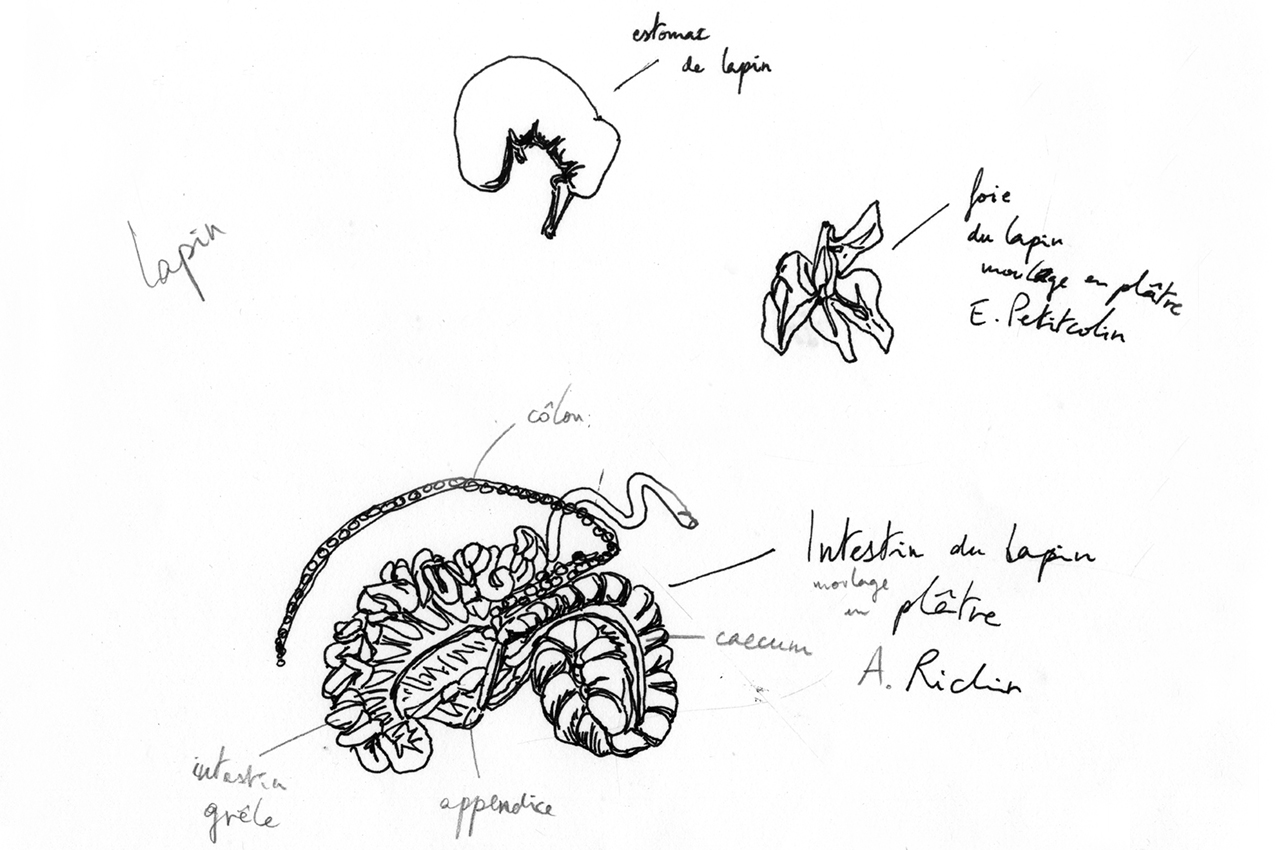 estomac
de lapin
lapin
foie
du lapin
moulage en plâtre
E. Petitcolin
côlon
Intestin du lapin
moulage
en plâtre
caecum
A. Richir
intestin
grêle
appendice